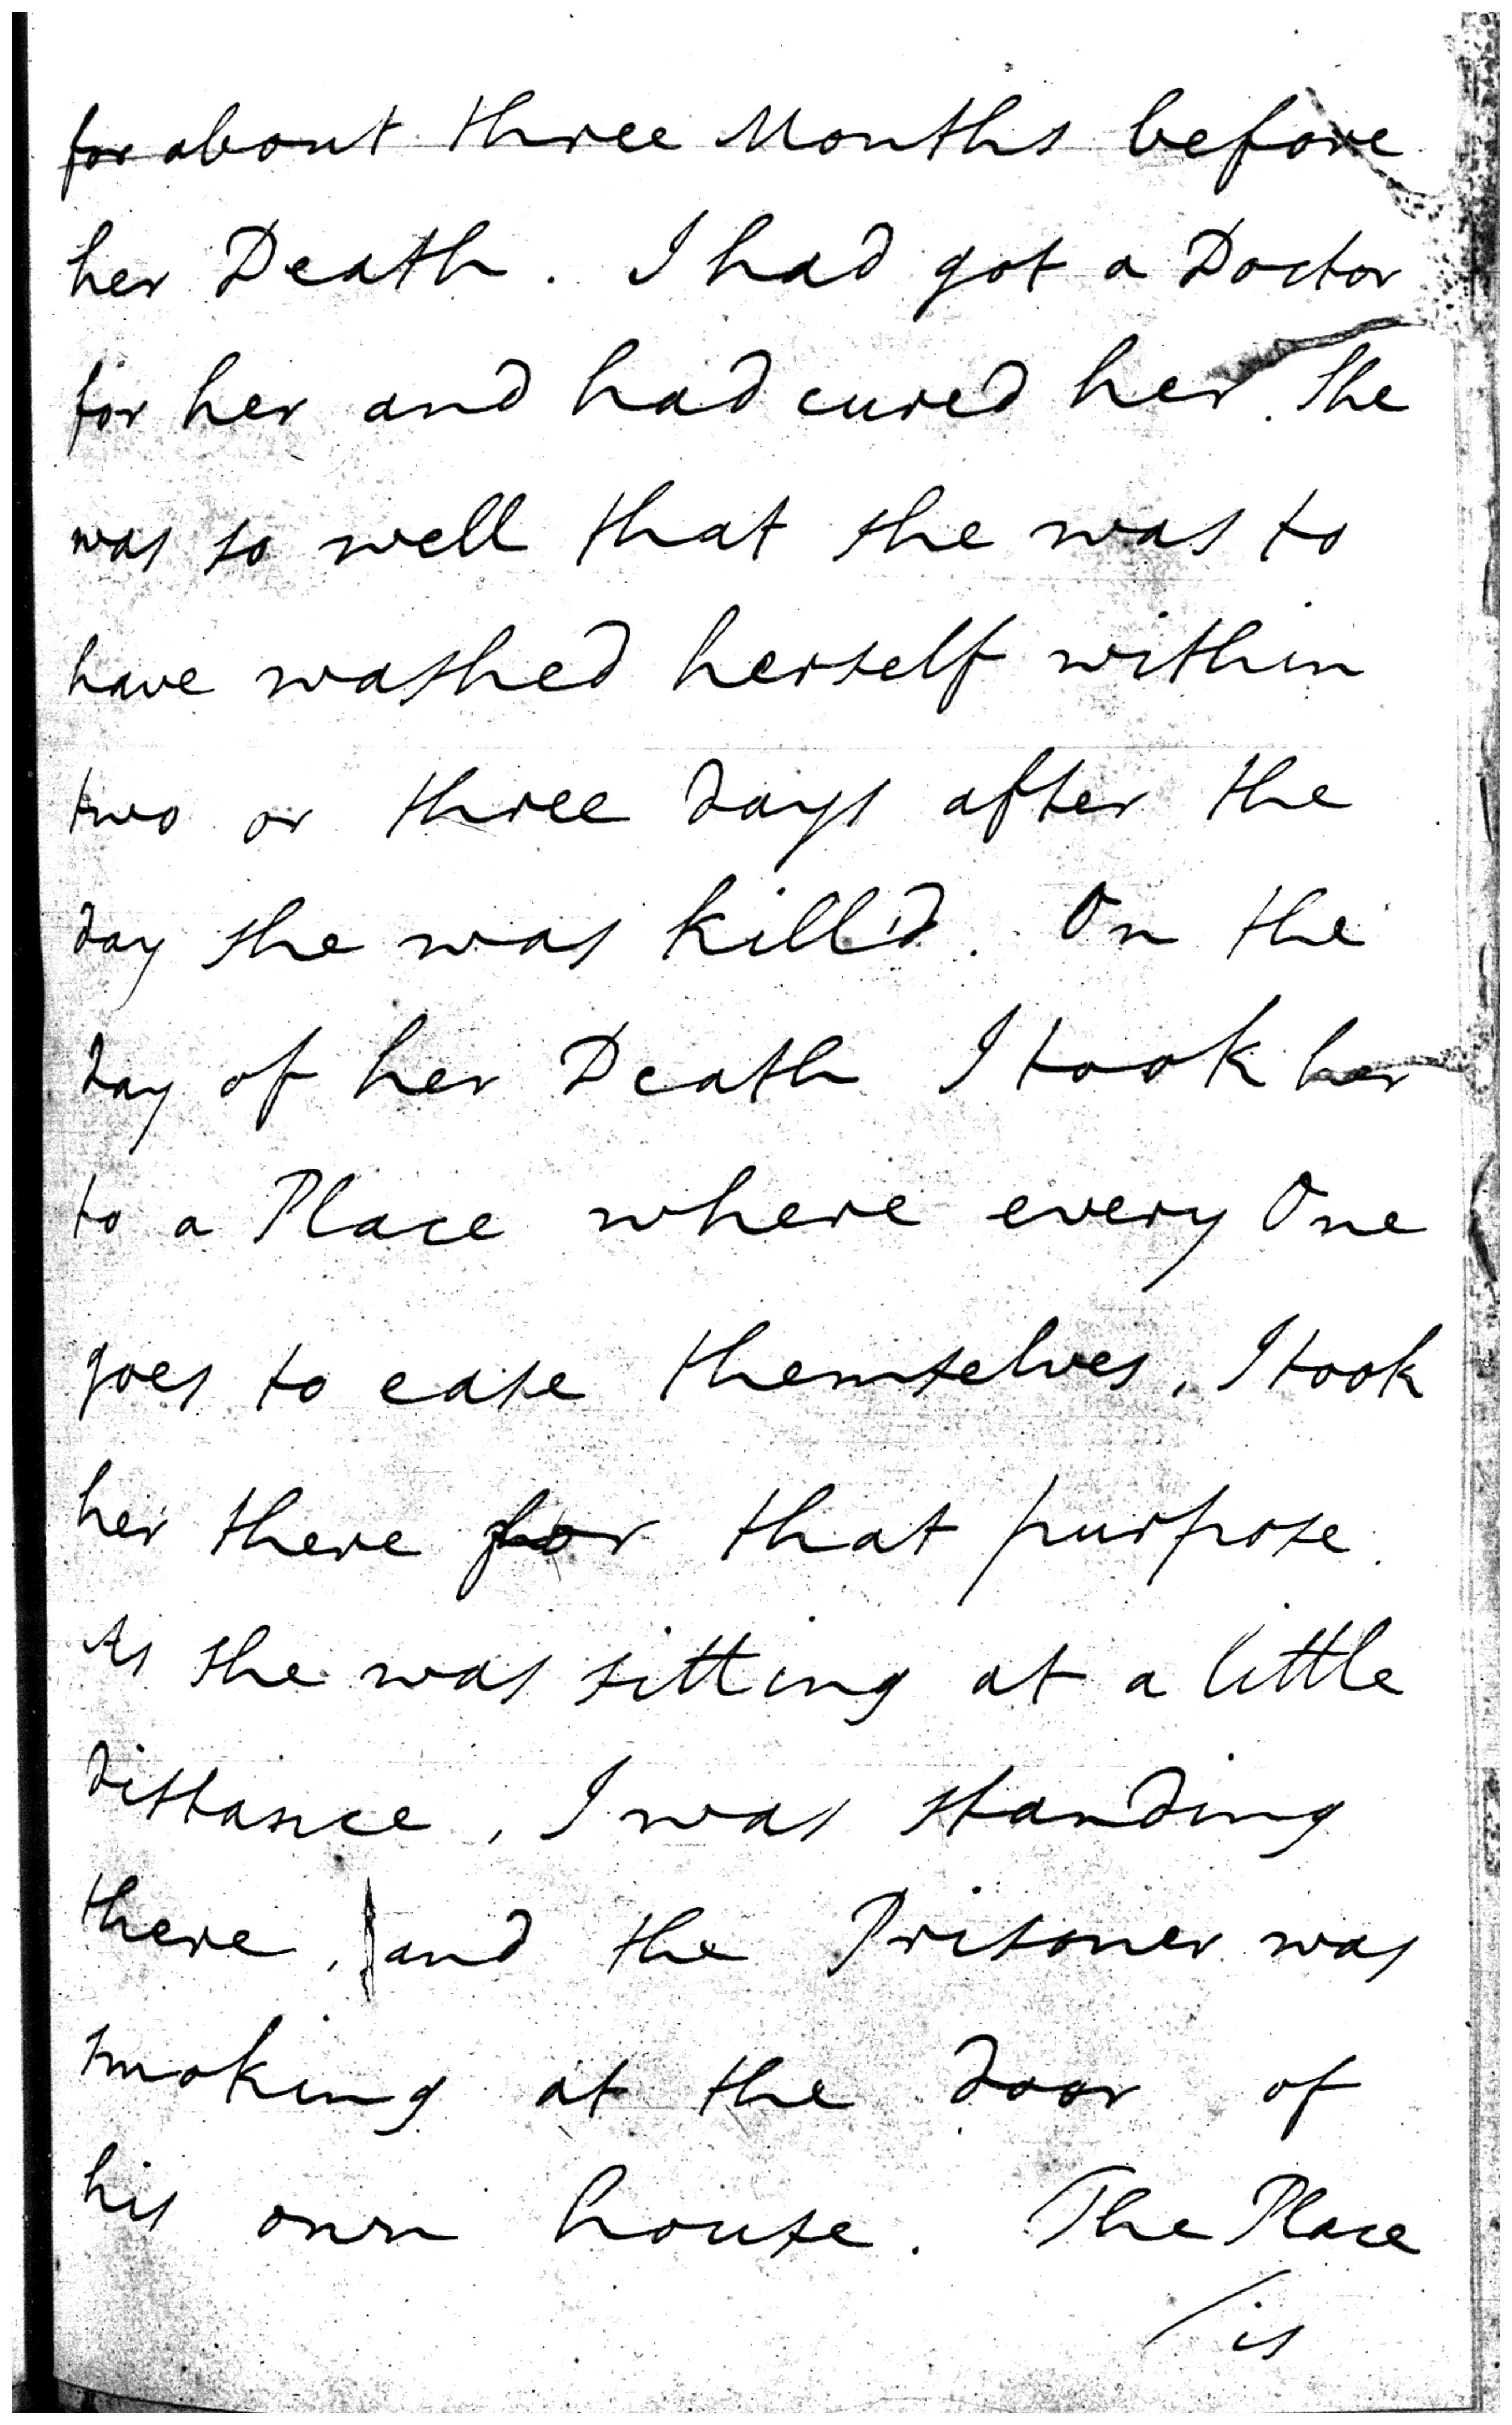 for about three Months before
her Death. I had got a Doctor
for her and had cured her. She
was so well that she was to
have washed herself within
two or three days after the
day she was kill'd. On the
day of her Death I took her
to a Place where every One
goes to ease themselves, I took
her there for that purpose.
As she was sitting at a little
distance, I was standing
there, and the Prisoner was
smoking at the door of
his own house. The Place
/is